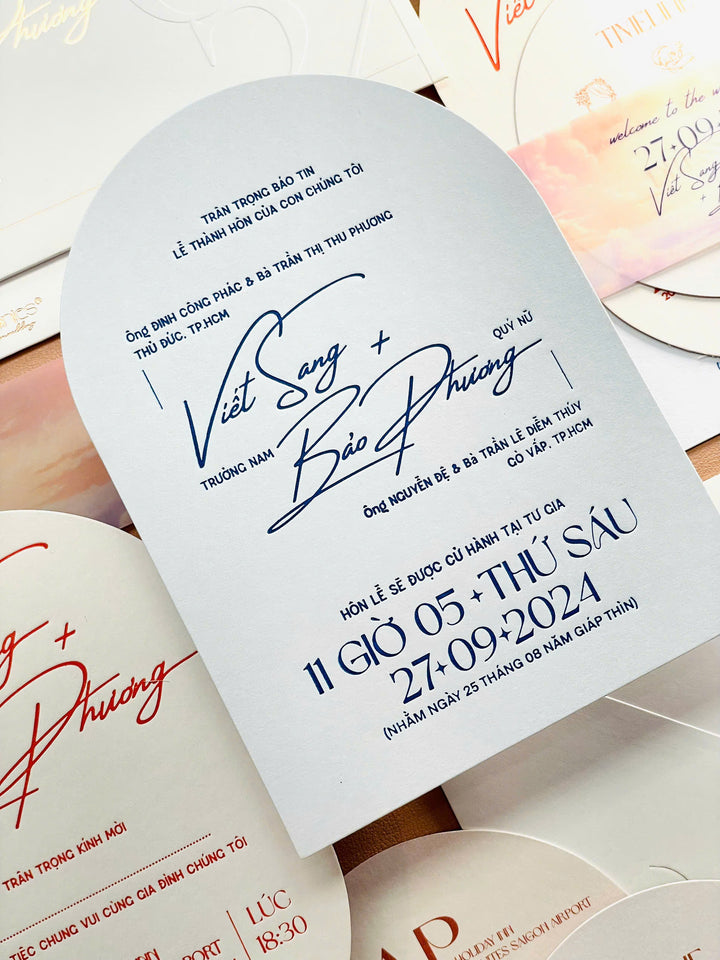 TRÂN TRỌNG BÁO TIN
LỄ THÀNH HÔN CỦA CON CHÚNG TÔI
Ông ĐINH CÔNG PHÁC & Bà TRẦN THỊ THU PHƯƠNG
THỦ ĐỨC. TP.HCM
Viết Sang +
QUÝ NỮ
TRƯỞNG NAM
Bảo Phương
Ông NGUYỄN ĐỆ & Bà TRẦN LÊ DIỄM THÚY
GÒ VẤP. TP.HCM
HÔN LỄ SẼ ĐƯỢC CỬ HÀNH TẠI TƯ GIA
11 GIỜ 05 + THỨ SÁU
27+09+2024
(NHẰM NGÀY 25 THÁNG 08 NĂM GIÁP THÌN)
Phương
Viết
welcome to the
27+09
Viết Sang
+
+
Phương
TRÂN TRỌNG KÍNH MỜI
TIỆC CHUNG VUI CÙNG GIA ĐÌNH CHÚNG TÔI
LÚC
18:30
HOLIDAY INN
SAIGON AIRPORT